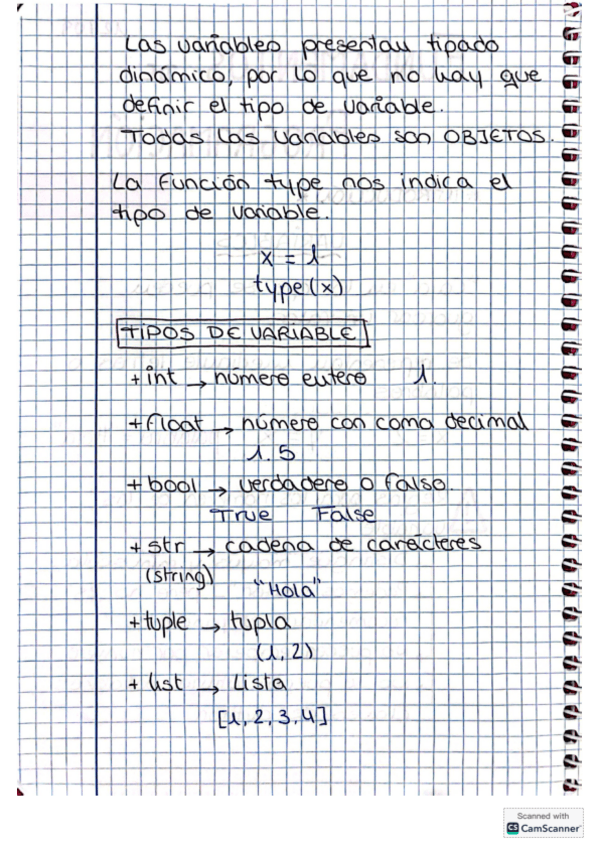 Las variables presentan tipado
dinámico, por lo que no hay que
definir el tipo de variable.
Todas las variables son OBJETOS.
La función type nos indica el
tipo de variable.
x = 1
type(x)
TIPOS DE VARIABLE
+ int → número entero 1.
+ float → número con coma decimal
1.5
+ bool → verdadero o falso.
True False
+ str → cadena de carácteres
(string) "Hola"
+ tuple → tupla
(1, 2)
+ list → Lista
[1, 2, 3, 4]
Scanned with
CS CamScanner